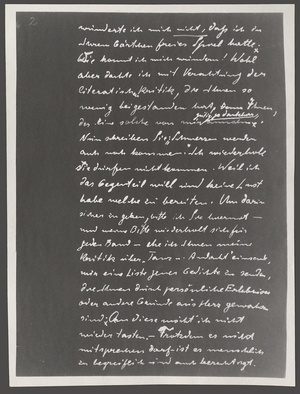 2
wunderte ich mich nicht, dass ich in
Ihren Gärten freies Spiel hatte.
Wie kann ich mich wundern! Wohl
aber dachte ich mit Verachtung der
Literatursch Kritik, die Ihnen so
wenig beigestanden hat, denn Ihnen,
der eine solche von
Nein schreiben Sie: Schmerzen werden
auch noch kommen. Ich wiederhole
Sie dürfen nicht kommen. Weil ich
das Gegenteil will und keine Lust
habe welche zu bereiten. Um darin
sicher zu gehen, bitte ich Sie hiermit —
und meine Bitte wiederholt sich für
jeden Band — ehe ich Ihnen meine
Kritik über Tanz u. Andacht einsende,
mir eine Liste jener Gedichte zu senden,
die Ihnen durch persönliche Erlebnisse
oder andere Gründe ans Herz gewachsen
sind; An diese möcht' ich nicht
wieder tasten. — Trotzdem es nicht
mitsprechen darf ist es menschlich
zu begreiflich und auch berechtigt.